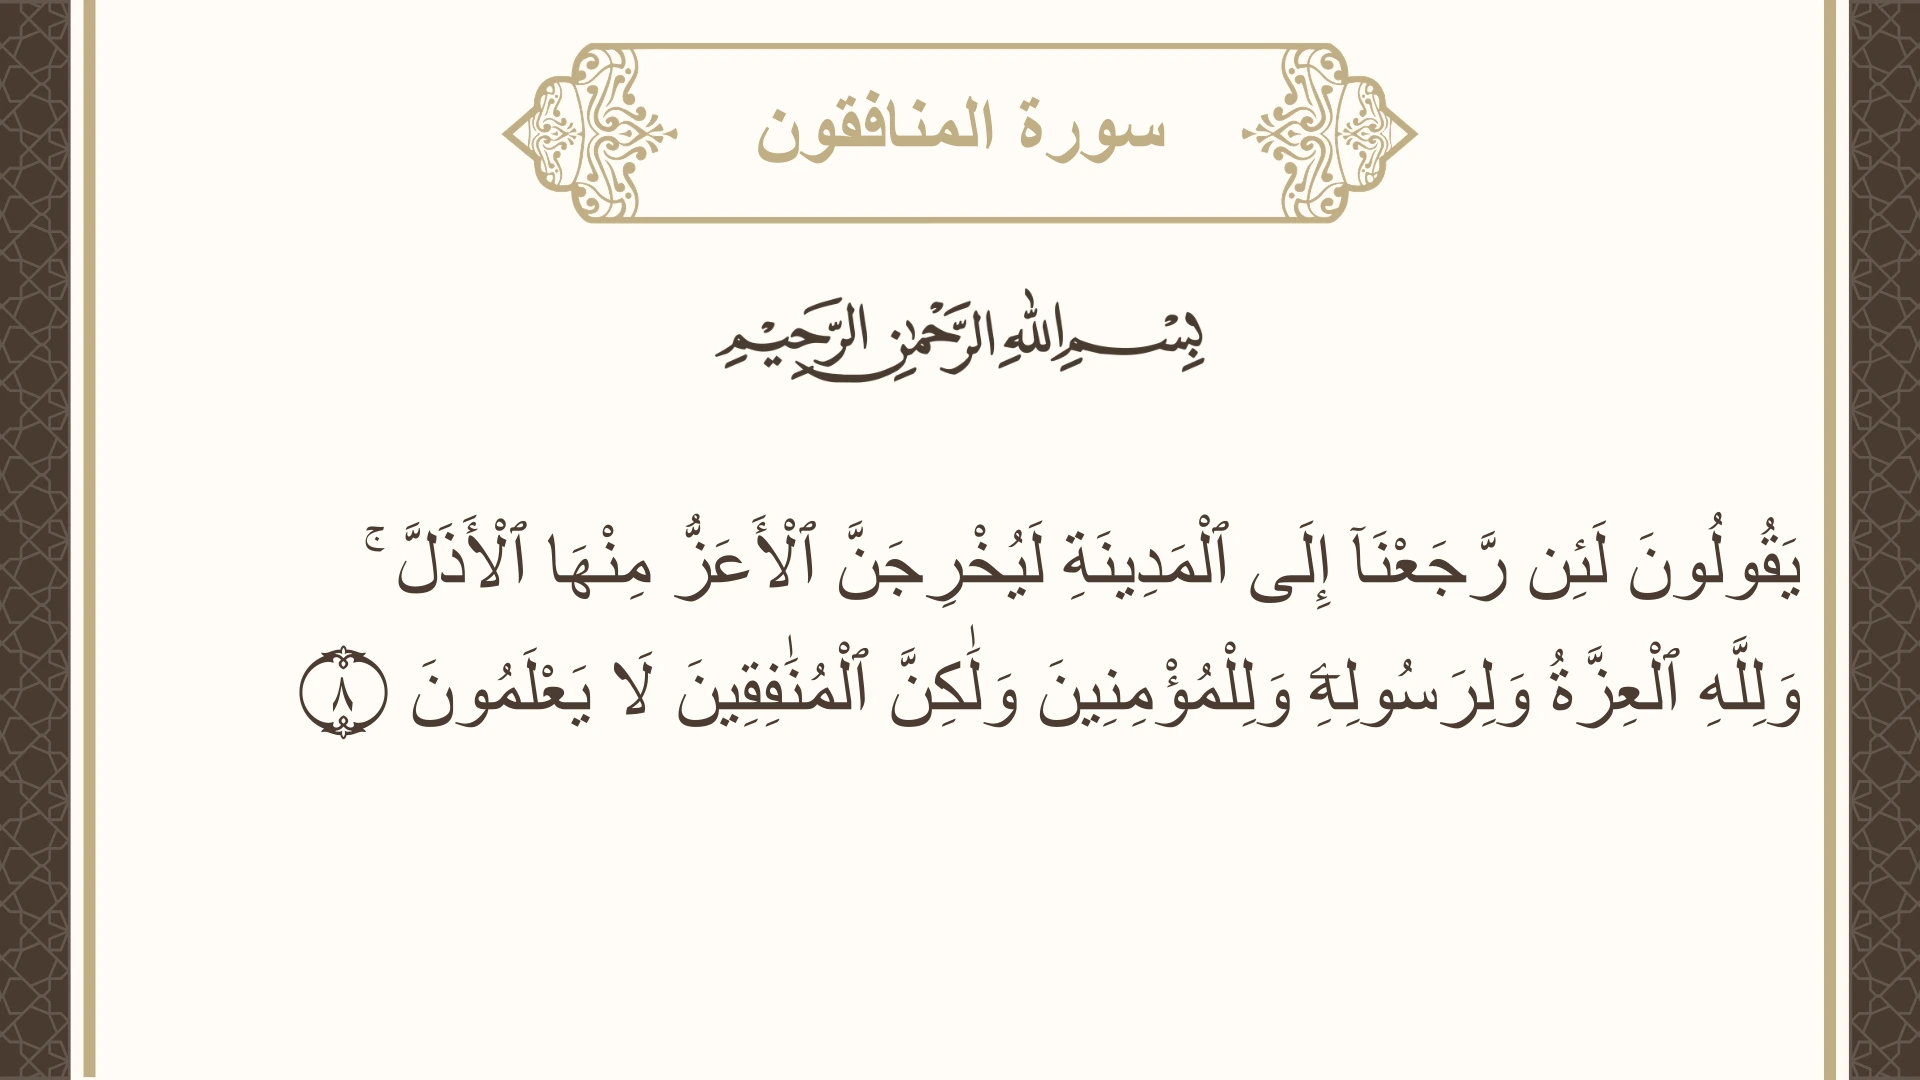 سورة المنافقون
بِسْمِ اللهِ الرَّحْمٰنِ الرَّحِيْمِ
يَقُولُونَ لَئِن رَّجَعْنَآ إِلَى ٱلْمَدِينَةِ لَيُخْرِجَنَّ ٱلْأَعَزُّ مِنْهَا ٱلْأَذَلَّ ۚ
وَلِلَّهِ ٱلْعِزَّةُ وَلِرَسُولِهِۦ وَلِلْمُؤْمِنِينَ وَلَٰكِنَّ ٱلْمُنَٰفِقِينَ لَا يَعْلَمُونَ ٨